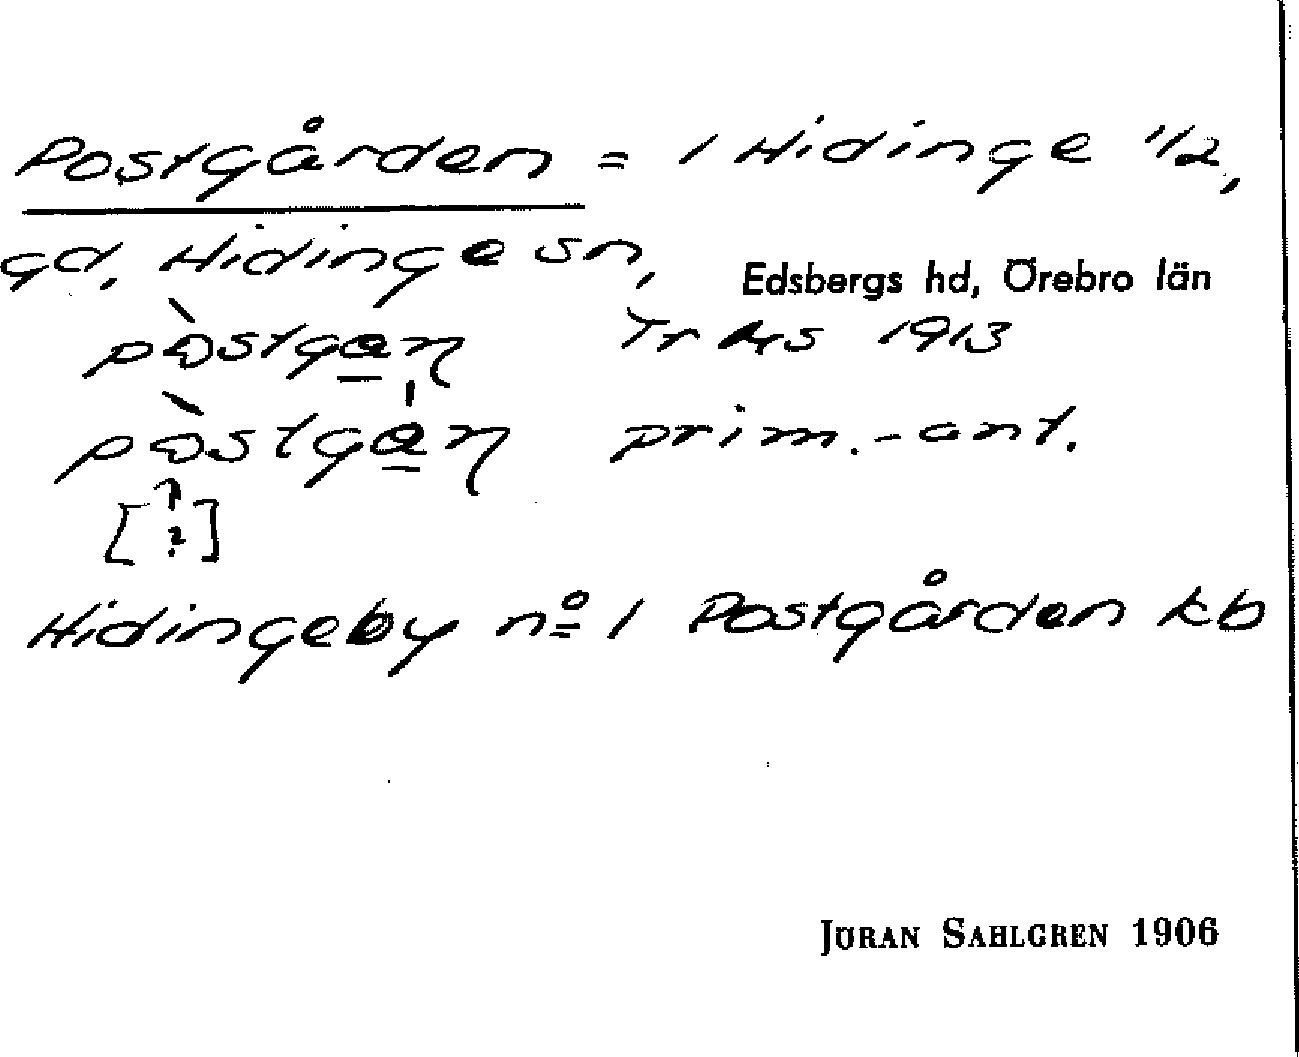 Postgården = 1 Hidinge 1/2,
gd, Hidinge sn,
Edsbergs hd, Örebro län
1913
prim.-ant.
[?]
Hidingeby nº 1 Postgården kb
JÖRAN SAHLGREN 1906